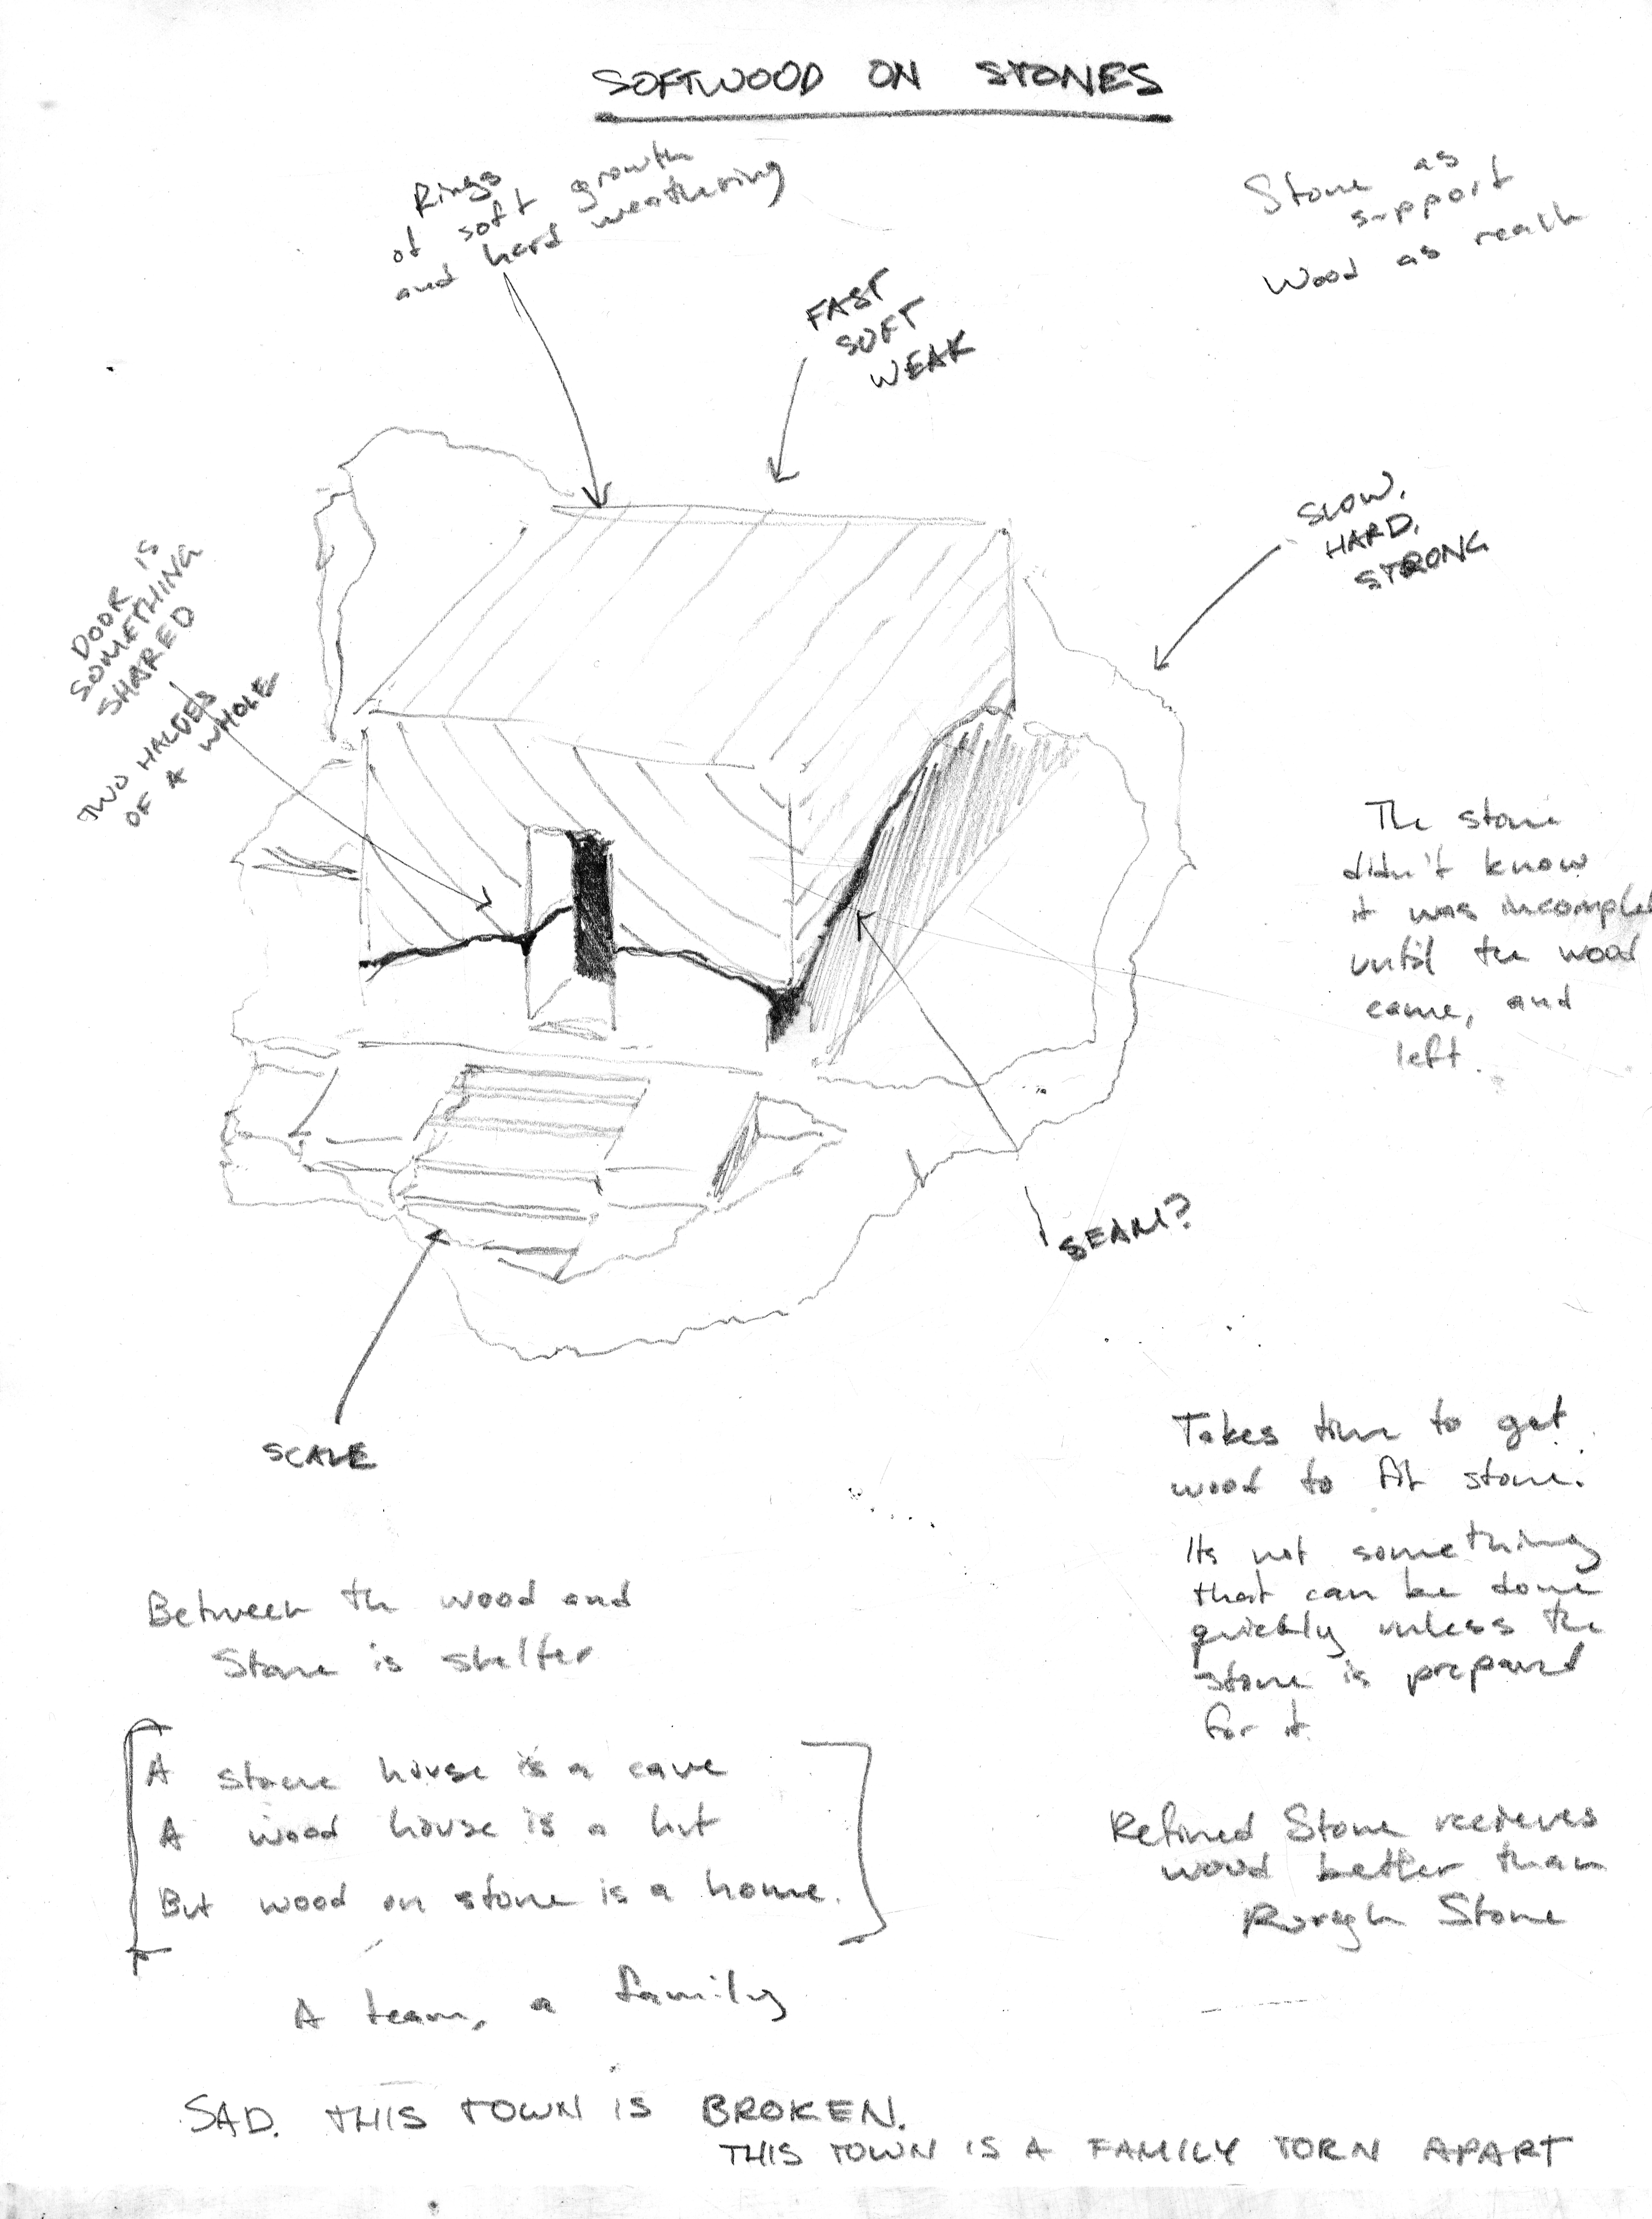 SOFTWOOD ON STONES
Rings
of soft growth
and hard weathering
Stone as
support
Wood as reach
FAST
SOFT
WEAK
SLOW.
HARD.
STRONG
DOOR IS
SOMETHING
SHARED
TWO HALVES
OF A WHOLE
The stone
didn't know
it was incomplet
until the wood
came, and
left.
SEAM?
SCALE
Takes time to get
wood to fit stone.
Its not something
that can be done
quickly unless the
stone is prepared
for it.
Between the wood and
Stone is shelter
A stone house is a cave
A wood house is a hut
But wood on stone is a home.
Refined Stone recieves
wood better than
Rough Stone
A team, a family
SAD. THIS TOWN IS BROKEN.
THIS TOWN IS A FAMILY TORN APART